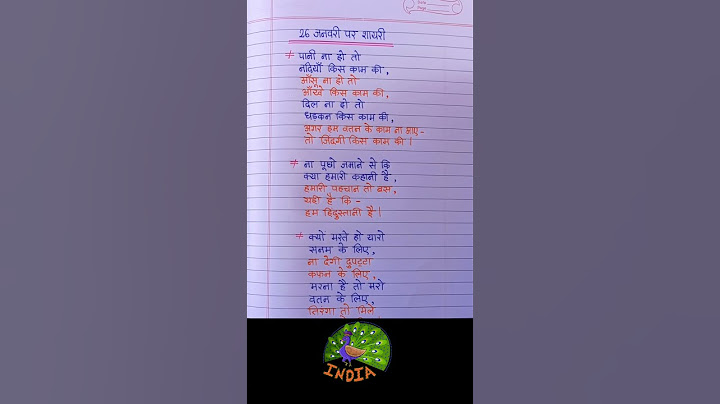 26 जनवरी पर शायरी
पानी ना हो तो
नदियाँ किस काम की,
आँसू ना हो तो
आँखें किस काम की,
दिल ना हो तो
धड़कन किस काम की,
अगर हम वतन के काम ना आए-
तो जिंदगी किस काम की।
ना पूछो जमाने से कि
क्या हमारी कहानी है,
हमारी पहचान तो बस,
यही है कि -
हम हिंदुस्तानी है।
क्यों मरते हो यारो
सनम के लिए,
ना देगी दुपट्टा
कफन के लिए,
मरना है तो मरो
वतन के लिए,
तिरंगा तो मिले
INDIA